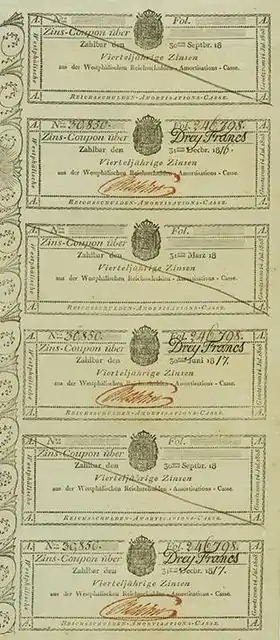 A. A.
Zins-Coupon über Fol.
Zahlbar den 30sten Septbr. 18
Vierteljährige Zinsen
aus der Westphälischen Reichsschulden-Amortisations-Casse.
A. Reichsschulden-Amortisations-Casse. A.
A. No. 30830. Fol. 246798. A.
Zins-Coupon über Drey Francs
Zahlbar den 31sten Decbr. 1816.
Vierteljährige Zinsen
aus der Westphälischen Reichsschulden-Amortisations-Casse.
A. Reichsschulden-Amortisations-Casse. A.
A. No. Fol. A.
Zins-Coupon über
Zahlbar den 31sten März 18
Vierteljährige Zinsen
aus der Westphälischen Reichsschulden-Amortisations-Casse.
A. Reichsschulden-Amortisations-Casse. A.
A. No. 30830. Fol. 246798. A.
Zins-Coupon über Drey Francs
Zahlbar den 30sten Juni 1817.
Vierteljährige Zinsen
aus der Westphälischen Reichsschulden-Amortisations-Casse.
A. Reichsschulden-Amortisations-Casse. A.
A. No. Fol. A.
Zins-Coupon über
Zahlbar den 30sten Septbr. 18
Vierteljährige Zinsen
aus der Westphälischen Reichsschulden-Amortisations-Casse.
A. Reichsschulden-Amortisations-Casse. A.
A. No. 30830. Fol. 246798. A.
Zins-Coupon über Drey Francs
Zahlbar den 31sten Decbr. 1817.
Vierteljährige Zinsen
aus der Westphälischen Reichsschulden-Amortisations-Casse.
A. Reichsschulden-Amortisations-Casse. A.